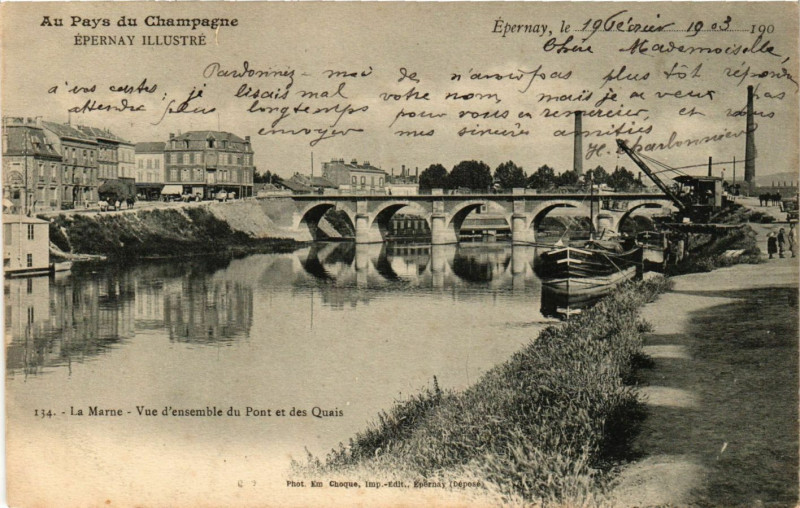 Au Pays du Champagne
ÉPERNAY ILLUSTRÉ
Épernay, le 19 Février 1903 190
Chère Mademoiselle,
Pardonnez-moi de n'avoir pas plus tôt répondu
à vos cartes; je lisais mal votre nom, mais je ne veux pas
attendre plus longtemps pour vous en remercier, et vous
envoyer mes sincères amitiés
H. Charbonnier
134. - La Marne - Vue d'ensemble du Pont et des Quais
Phot. Em Choque, Imp.-Edit., Épernay (Déposé)